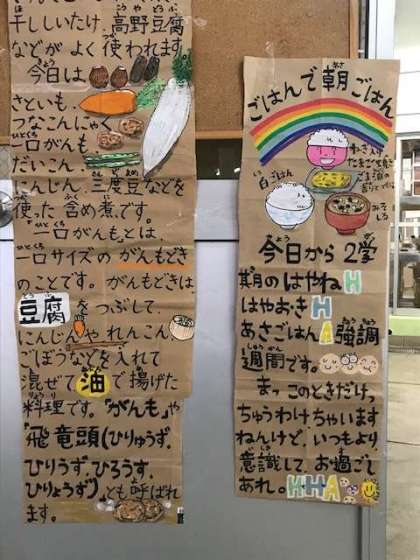 干ししいたけ、高野豆腐
などが よく 使われます。
今日は、
さといも、
つなこんにゃく、
一口がんも、
だいこん、
にんじん、三度豆などを
使った 含め煮です。
一口がんもとは、
一口サイズの がんもどき
のことです。がんもどきは、
豆腐 をつぶして、
にんじんや れんこん、
ごぼうなどを 入れて
混ぜて 油で 揚げた
料理です。"がんも"や
"飛竜頭(ひりゅうず、
ひりうず、ひろうす、
ひりょうず)"とも 呼ばれ
ます。
ごはんで 朝ごはん
白ごはん
みそしる
今日から 2学
期の はやね H
はやおき H
あさごはん A 強調
週間です。
まっ このときだけっ
ちゅうわけ ちゃいます
ねんけど、いつもより、
意識して、お過ごし
あれ。H・H・A